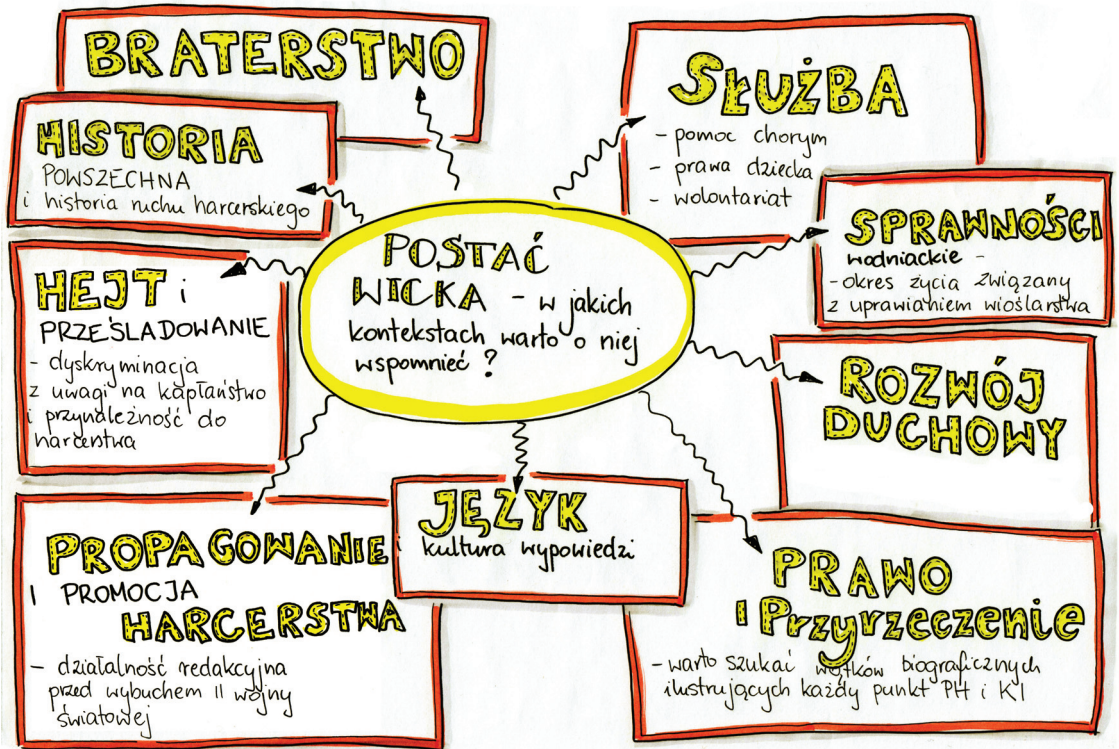 BRATERSTWO
HISTORIA
POWSZECHNA
i historia ruchu harcerskiego
HEJT i
PRZEŚLADOWANIE
- dyskryminacja
z uwagi na kapłaństwo
i przynależność do
harcerstwa
PROPAGOWANIE
I PROMOCJA
HARCERSTWA
- działalność redakcyjna
przed wybuchem II wojny
światowej
POSTAĆ
WICKA - w jakich
kontekstach warto o niej
wspomnieć ?
JĘZYK
i kultura wypowiedzi
SŁUŻBA
- pomoc chorym
- prawa dziecka
- wolontariat
SPRAWNOŚCI
wodniackie -
- okres życia związany
z uprawianiem wioślarstwa
ROZWÓJ
DUCHOWY
PRAWO
I Przyrzeczenie
- warto szukać wątków biograficznych
ilustrujących każdy punkt PH i KI